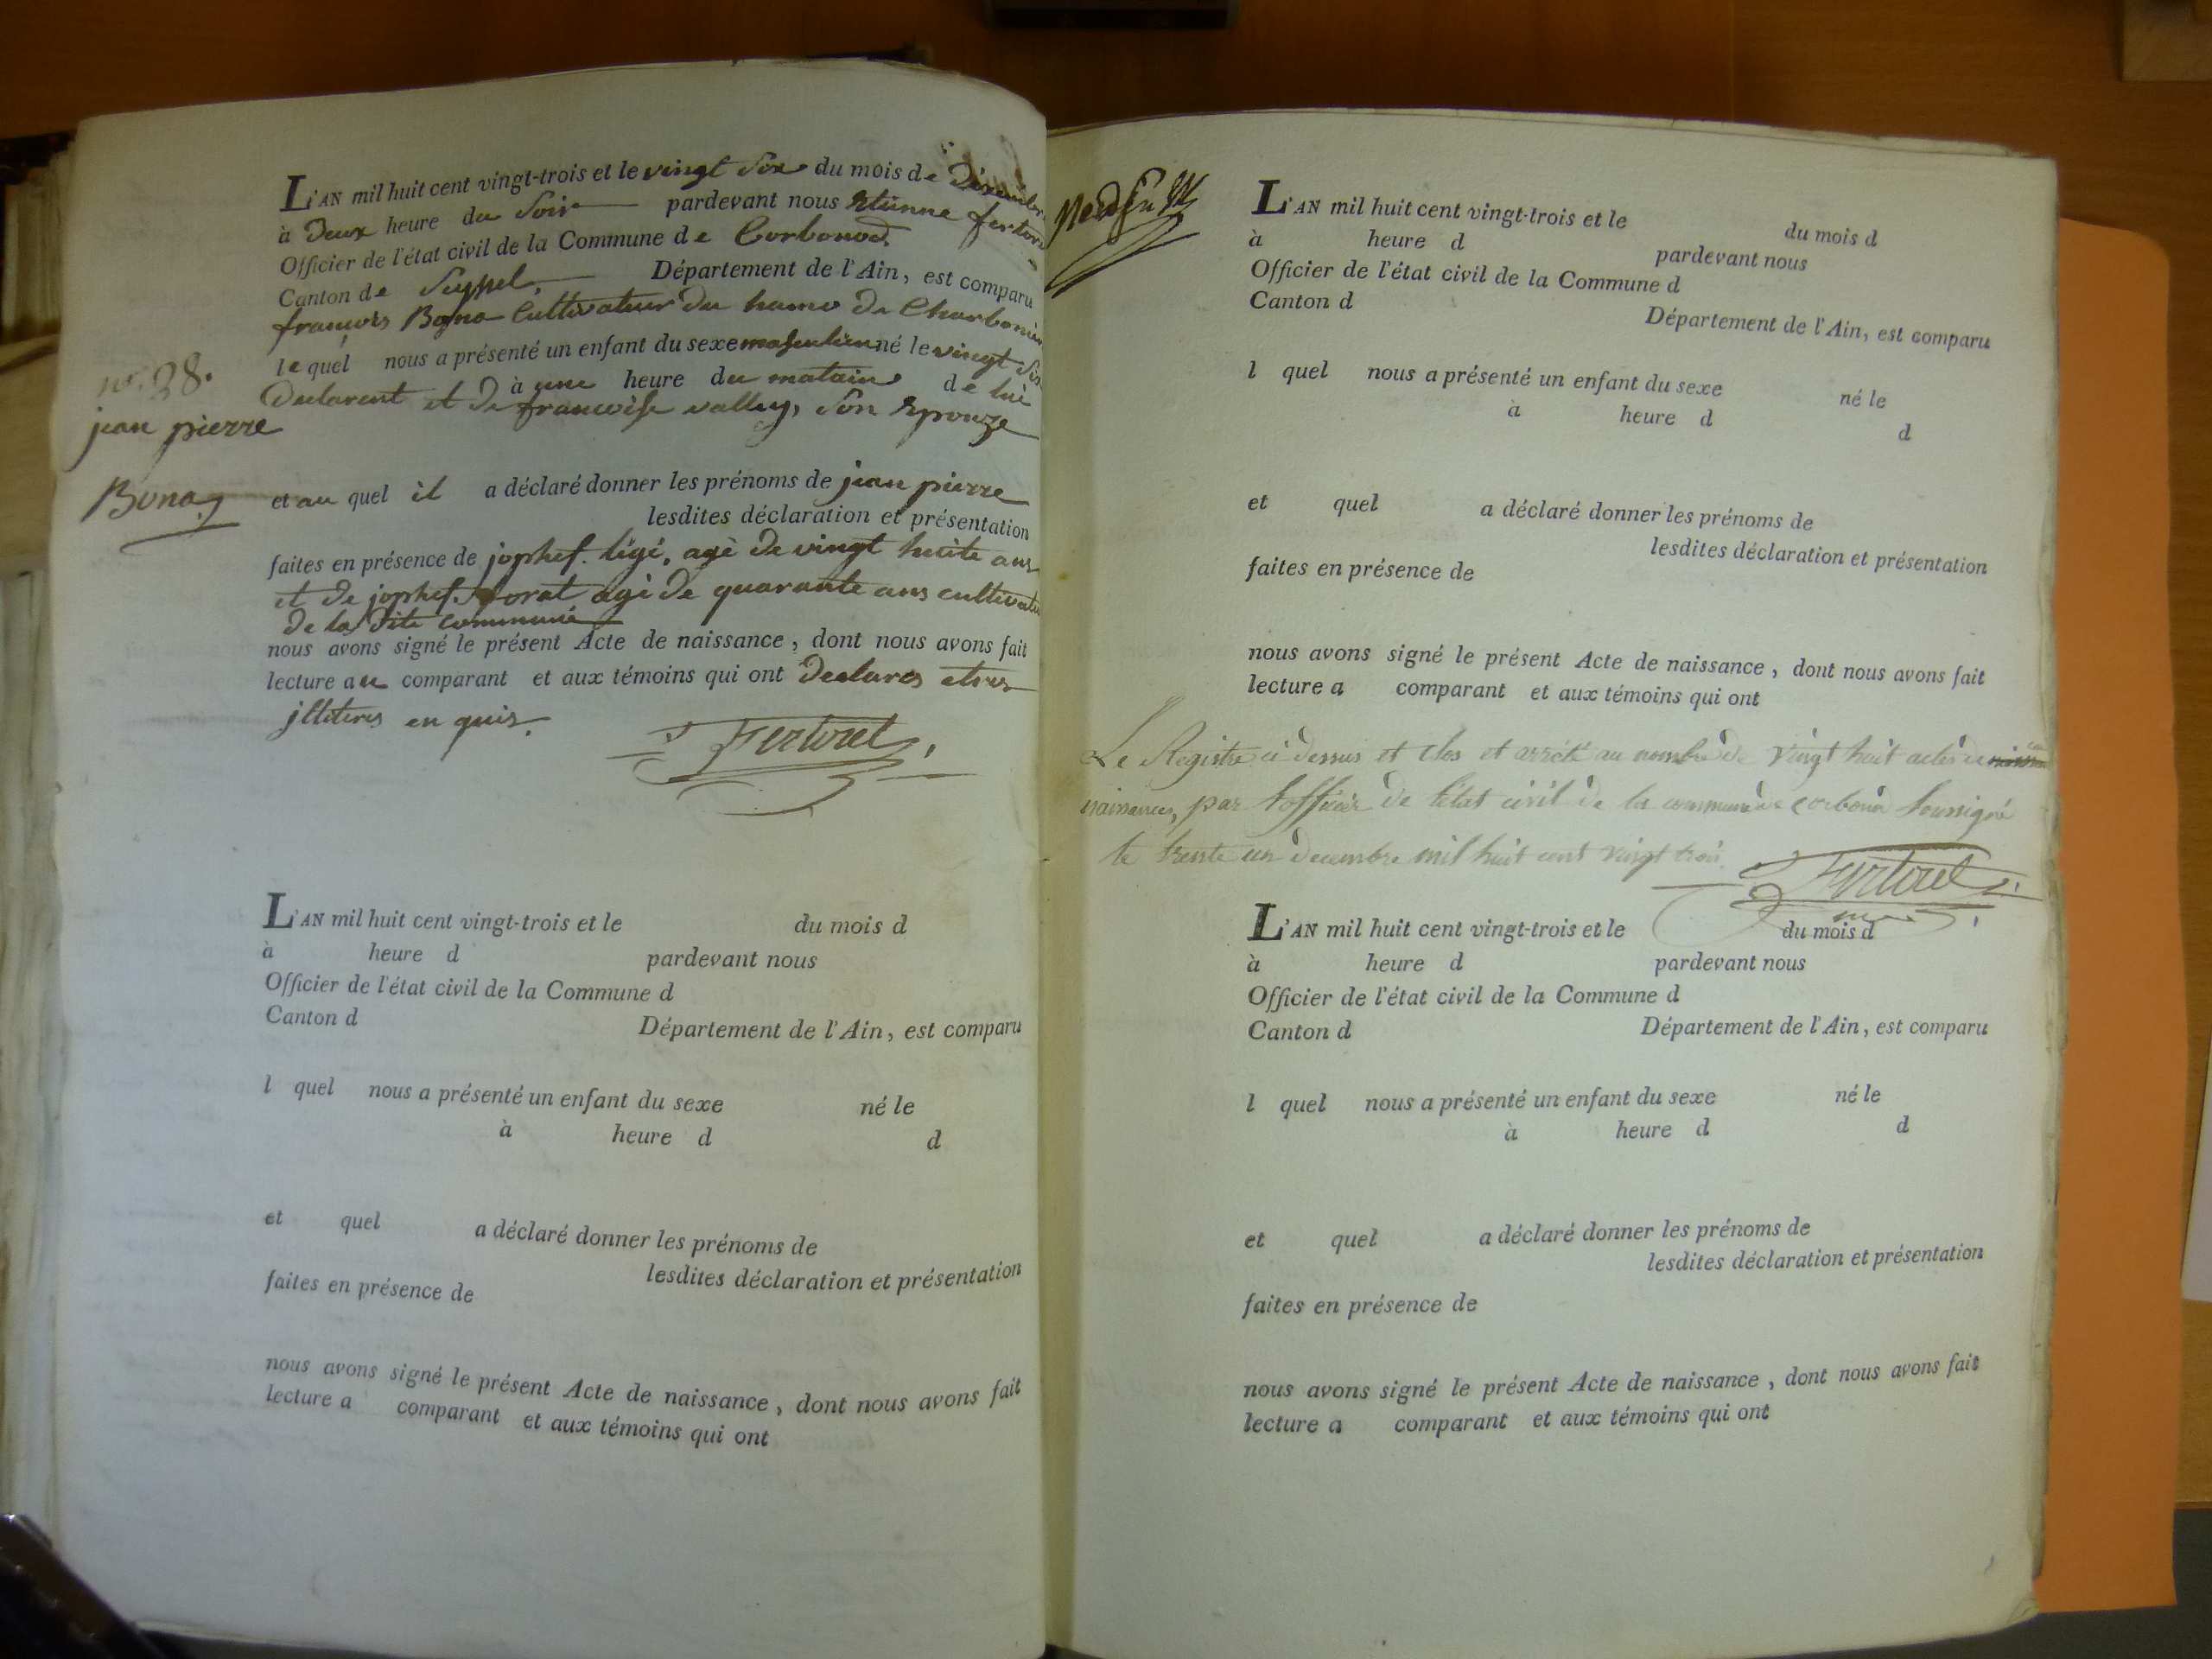 L'AN mil huit cent vingt-trois et le vingt six du mois de Décembre
à deux heure du soir pardevant nous etienne fertoret
Officier de l'état civil de la Commune de Corbonod
Canton de Seyssel, Département de l'Ain, est comparu
françois Bona Cultivateur du hamo de Charboni
lequel nous a présenté un enfant du sexe masculin né le vingt six
à une heure du matain de lui
declarent et de francoise valley, son epouze
n° 28.
jean pierre
Bona
et au quel il a déclaré donner les prénoms de jean pierre
lesdites déclaration et présentation
faites en présence de jophef. ligé, agé de vingt huite ans
et de jophef. agé de quarante ans cultivate
de la dite commune
nous avons signé le présent Acte de naissance, dont nous avons fait
lecture au comparant et aux témoins qui ont declares etres
jlliteres en quis.
Fertoret
L'AN mil huit cent vingt-trois et le du mois d
à heure d pardevant nous
Officier de l'état civil de la Commune d
Canton d Département de l'Ain, est comparu
l quel nous a présenté un enfant du sexe né le
à heure d d
et quel a déclaré donner les prénoms de
lesdites déclaration et présentation
faites en présence de
nous avons signé le présent Acte de naissance, dont nous avons fait
lecture a comparant et aux témoins qui ont
L'AN mil huit cent vingt-trois et le du mois d
à heure d pardevant nous
Officier de l'état civil de la Commune d
Canton d Département de l'Ain, est comparu
l quel nous a présenté un enfant du sexe né le
à heure d d
et quel a déclaré donner les prénoms de
lesdites déclaration et présentation
faites en présence de
nous avons signé le présent Acte de naissance, dont nous avons fait
lecture a comparant et aux témoins qui ont
Le Registre ci dessus et clos et arrété au nombre de vingt huit actes de
naissances, par l'officier de l'état civil de la commune de corbonod soussigné
le trente un decembre mil huit cent vingt trois
Fertoret
L'AN mil huit cent vingt-trois et le du mois d
à heure d pardevant nous
Officier de l'état civil de la Commune d
Canton d Département de l'Ain, est comparu
l quel nous a présenté un enfant du sexe né le
à heure d d
et quel a déclaré donner les prénoms de
lesdites déclaration et présentation
faites en présence de
nous avons signé le présent Acte de naissance, dont nous avons fait
lecture a comparant et aux témoins qui ont